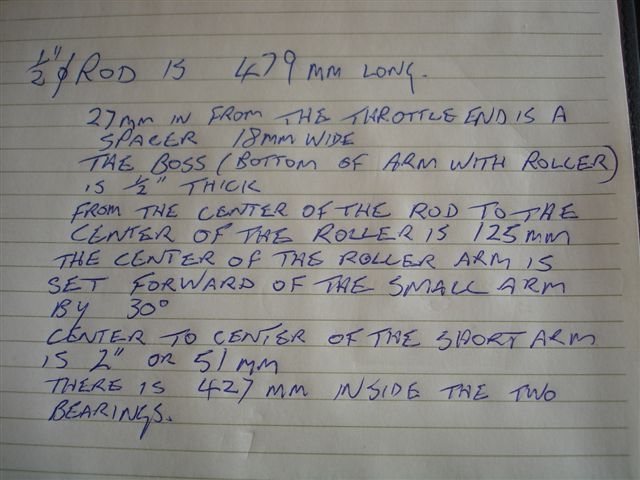 1/2" ϕ ROD IS 479 MM LONG.
27mm IN FROM THE THROTTLE END IS A
SPACER 18MM WIDE
THE BOSS (BOTTOM OF ARM WITH ROLLER)
IS 1/2" THICK
FROM THE CENTER OF THE ROD TO THE
CENTER OF THE ROLLER IS 125MM
THE CENTER OF THE ROLLER ARM IS
SET FORWARD OF THE SMALL ARM
BY 30°
CENTER TO CENTER OF THE SHORT ARM
IS 2" OR 51 MM
THERE IS 427 MM INSIDE THE TWO
BEARINGS.